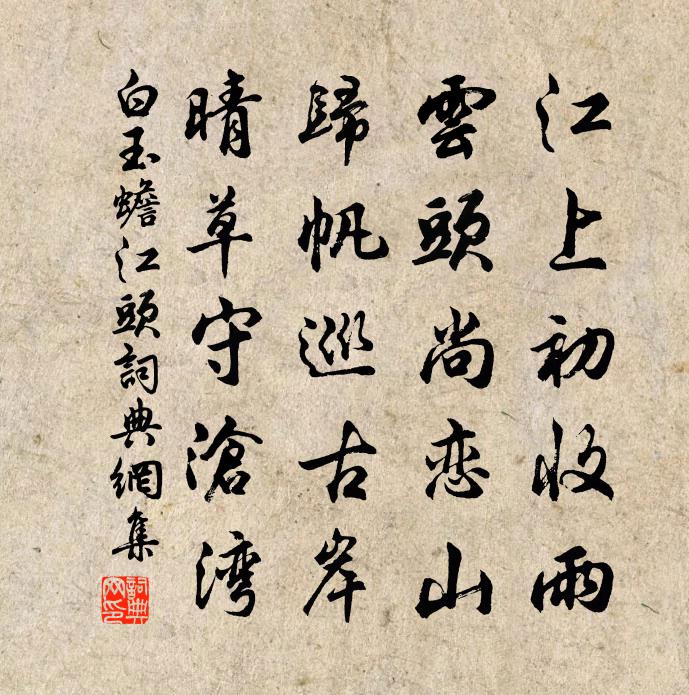 江上初收雨
雲頭尚恋山
歸帆巡古岸
晴草守滄湾
白玉蟾江頭詞典網集
詞典网印